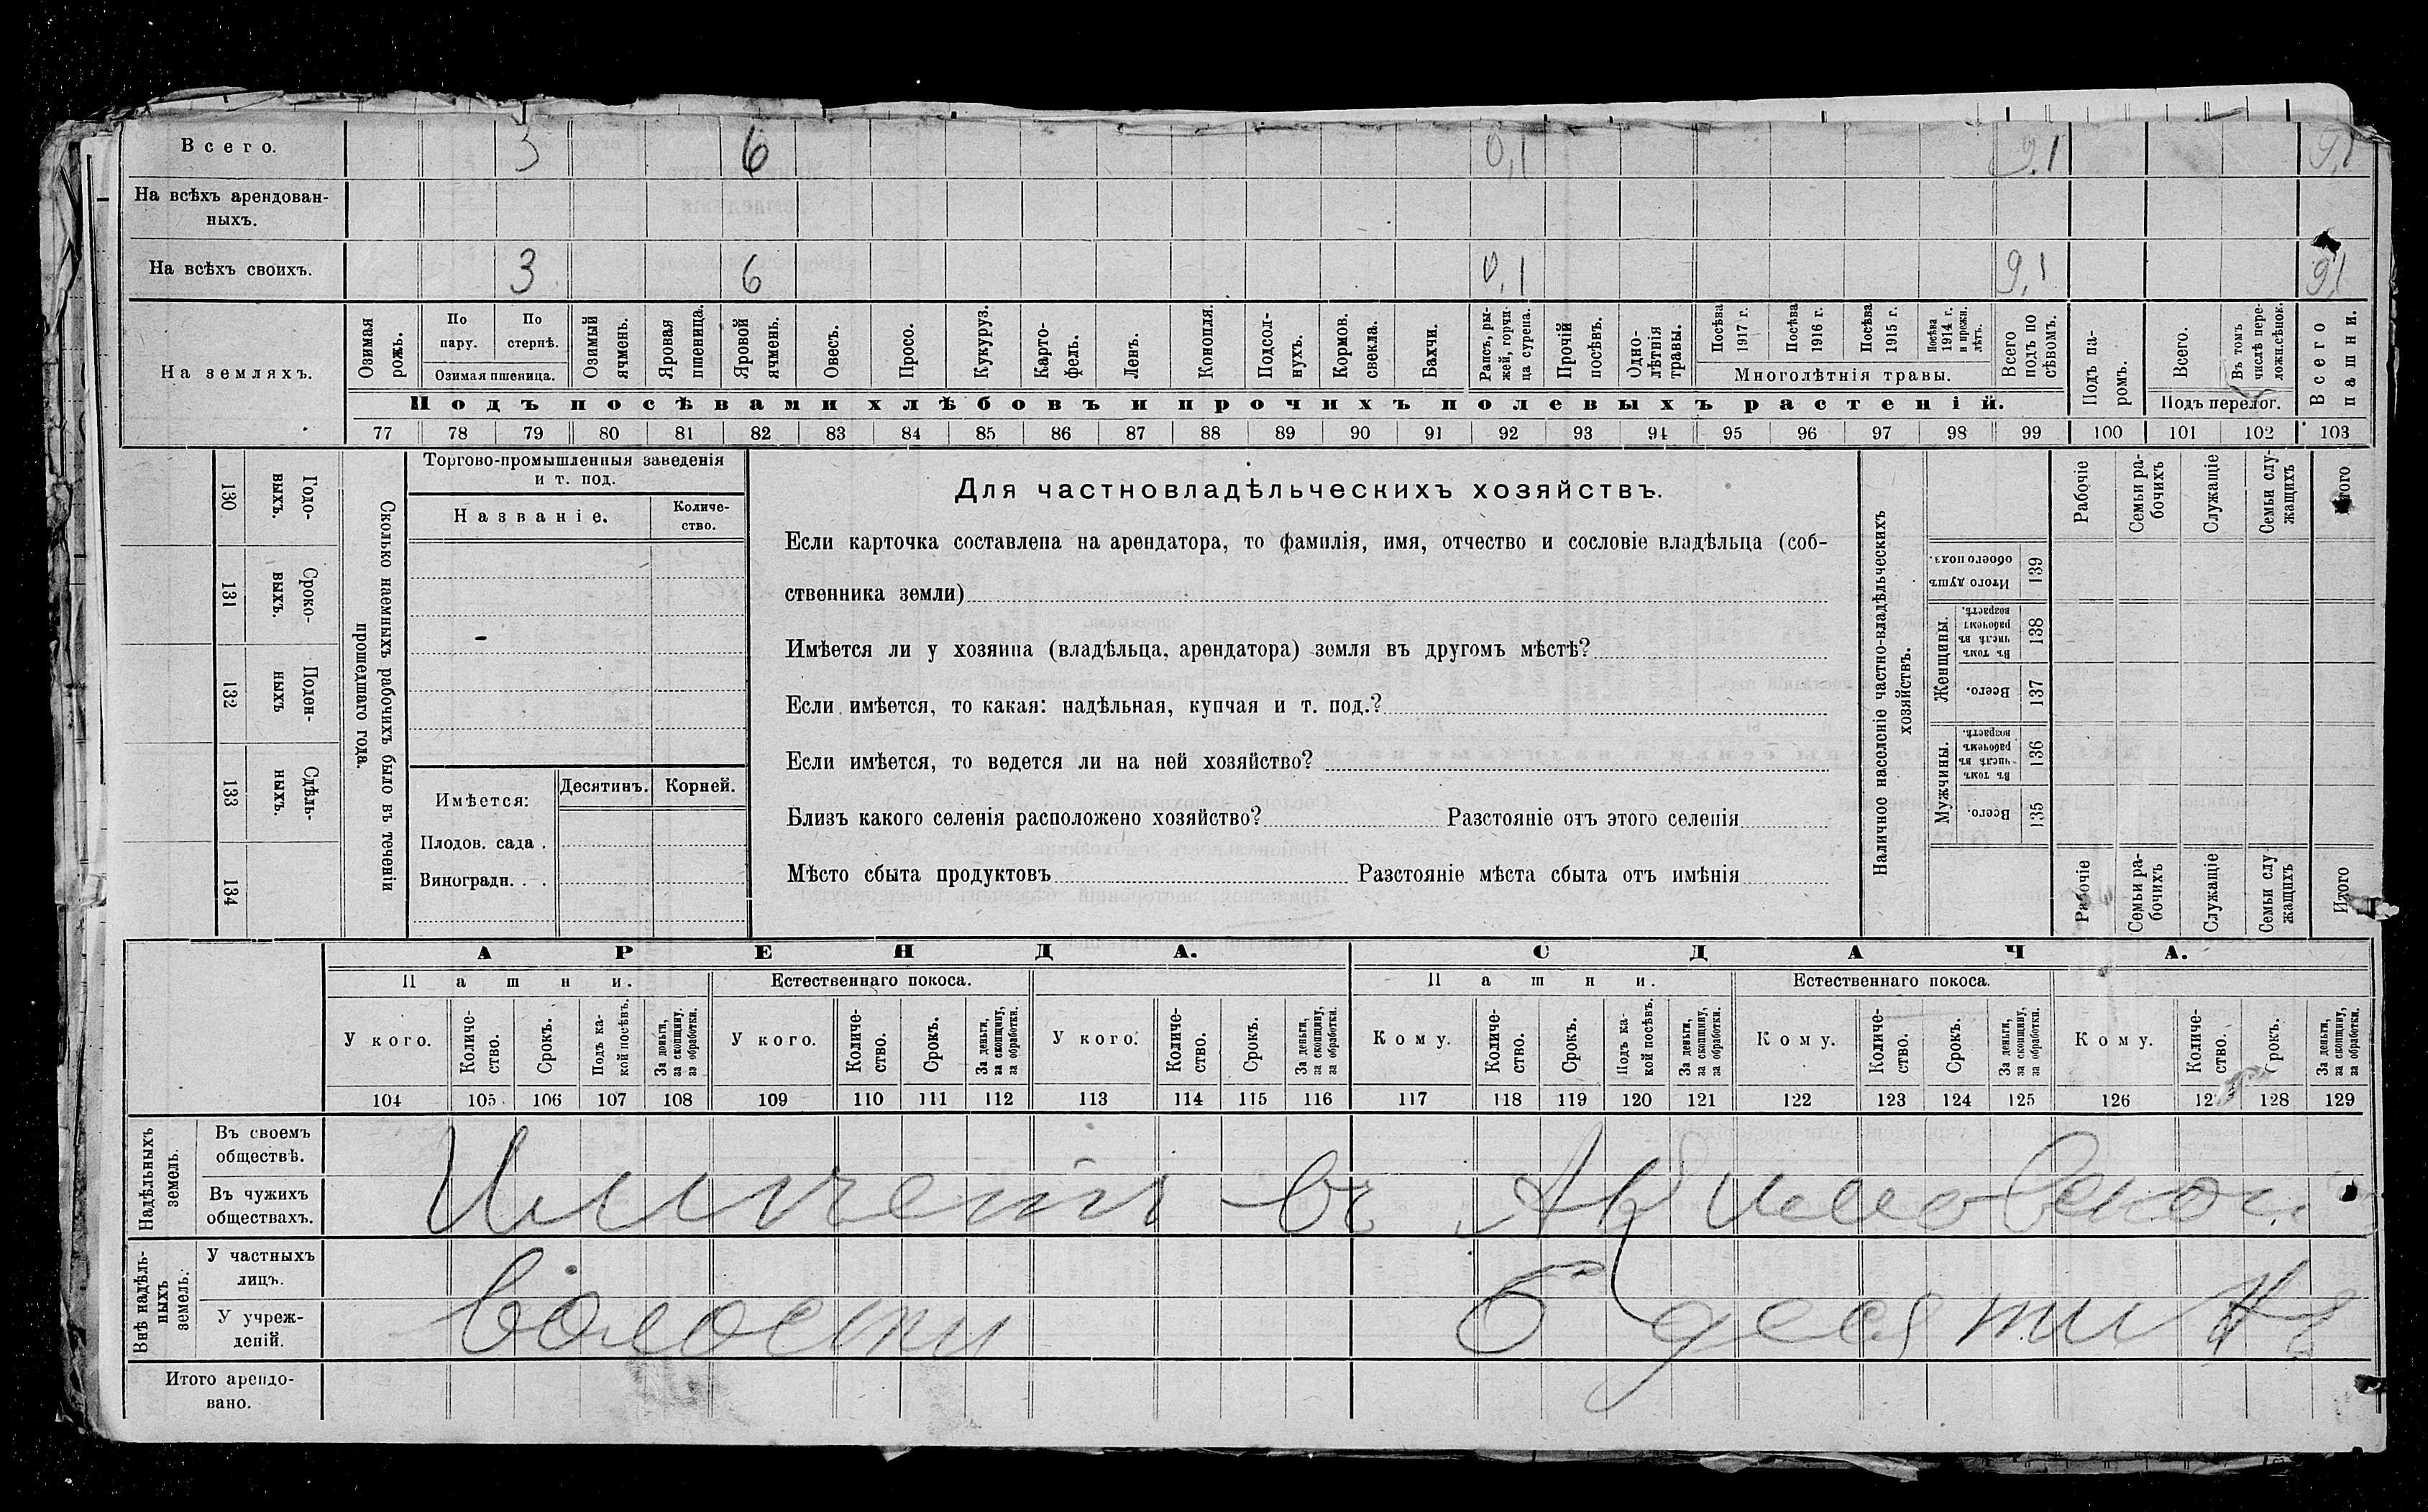 Всего. 3 6 0,1 9.1 9,1
На всѣхъ арендован-
ныхъ.
На всѣхъ своихъ. 3 6 0,1 9,1 9,1
На земляхъ.
Озимая рожь.
По пару.
По стернѣ.
Озимая пшеница.
Озимый ячмень.
Яровая пшеница.
Яровой ячмень.
Овесъ.
Просо.
Кукуруз.
Карто-
фель.
Ленъ.
Конопля.
Подсол-
нухъ.
Кормов. свекла.
Бахчи.
Рапсъ, ры-
жей, горчи-
ца сурепа.
Прочій посѣвъ.
Одно-
лѣтнія травы.
Посѣва 1917 г.
Посѣва 1916 г.
Посѣва 1915 г.
Посѣва 1914 г. и прежн. лѣтъ.
Многолѣтнія травы.
Всего подъ по
сѣвомъ.
Подъ па-
ромъ.
Всего.
Въ томъ числѣ пере-
ложн.сѣнок.
Подъ перелог.
Всего пашни.
Подъ посѣвами хлѣбовъ и прочихъ полевыхъ растеній.
77 78 79 80 81 82 83 84 85 86 87 88 89 90 91 92 93 94 95 96 97 98 99 100 101 102 103
Сколько наемныхъ рабочихъ было въ теченіи
прошедшаго года.
Годо-
выхъ.
130
Сроко-
выхъ.
131
Поден-
ныхъ
132
Сдѣль-
ныхъ.
133
134
Торгово-промышленныя заведенія
и т. под.
Названіе.
Количе-
ство.
-
Имѣется: Десятинъ. Корней.
Плодов. сада .
Виноградн. . .
Для частновладѣльческихъ хозяйствъ.
Если карточка составлена на арендатора, то фамилія, имя, отчество и сословіе владѣльца (соб-
ственника земли)
Имѣется ли у хозяина (владѣльца, арендатора) земля въ другомъ мѣстѣ?
Если имѣется, то какая: надѣльная, купчая и т. под.?
Если имѣется, то ведется ли на ней хозяйство?
Близъ какого селенія расположено хозяйство? Разстояніе отъ этого селенія
Мѣсто сбыта продуктовъ Разстояніе мѣста сбыта отъ имѣнія
Наличное населеніе частно-владѣльческихъ
хозяйствъ.
Рабочіе
Семьи ра-
бочихъ
Служащіе
Семьи слу-
жащихъ
Итого
Итого душъ
обоего пола.
139
Женщины.
Въ томъ числѣ въ рабочемъ возрастѣ.
138
Всего.
137
Мужчины.
Въ томъ числѣ въ рабочемъ возрастѣ.
136
Всего.
135
Рабочіе
Семьи ра-
бочихъ
Служащіе
Семьи слу-
жащихъ
Итого
АРЕНДА. СДАЧА.
Пашни. Естественнаго покоса. Пашни. Естественнаго покоса.
У кого.
Количе-
ство.
Срокъ.
Подъ ка-
кой посѣвъ.
За деньги, за скопщину. за обработки.
У кого.
Количе-
ство.
Срокъ.
За деньги, за скопщину, за обработки.
У кого.
Количе-
ство.
Срокъ.
За деньги, за скопщину, за обработки.
Кому.
Количе-
ство.
Срокъ.
Подъ ка-
кой посѣвъ.
За деньги, за скопщину, за обработки.
Кому.
Количе-
ство.
Срокъ.
За деньги, за скопщину, за обработки.
Кому.
Количе-
ство.
Срокъ.
За деньги, за скопщину, за обработки.
104 105 106 107 108 109 110 111 112 113 114 115 116 117 118 119 120 121 122 123 124 125 126 127 128 129
Надѣльныхъ
земель.
Въ своемъ
обществѣ.
Въ чужихъ
обществахъ.
въ
Внѣ надѣль-
ныхъ
земель.
У частныхъ
лицъ.
У учреж-
деній.
Волости 6 десятинъ
Итого арендо-
вано.